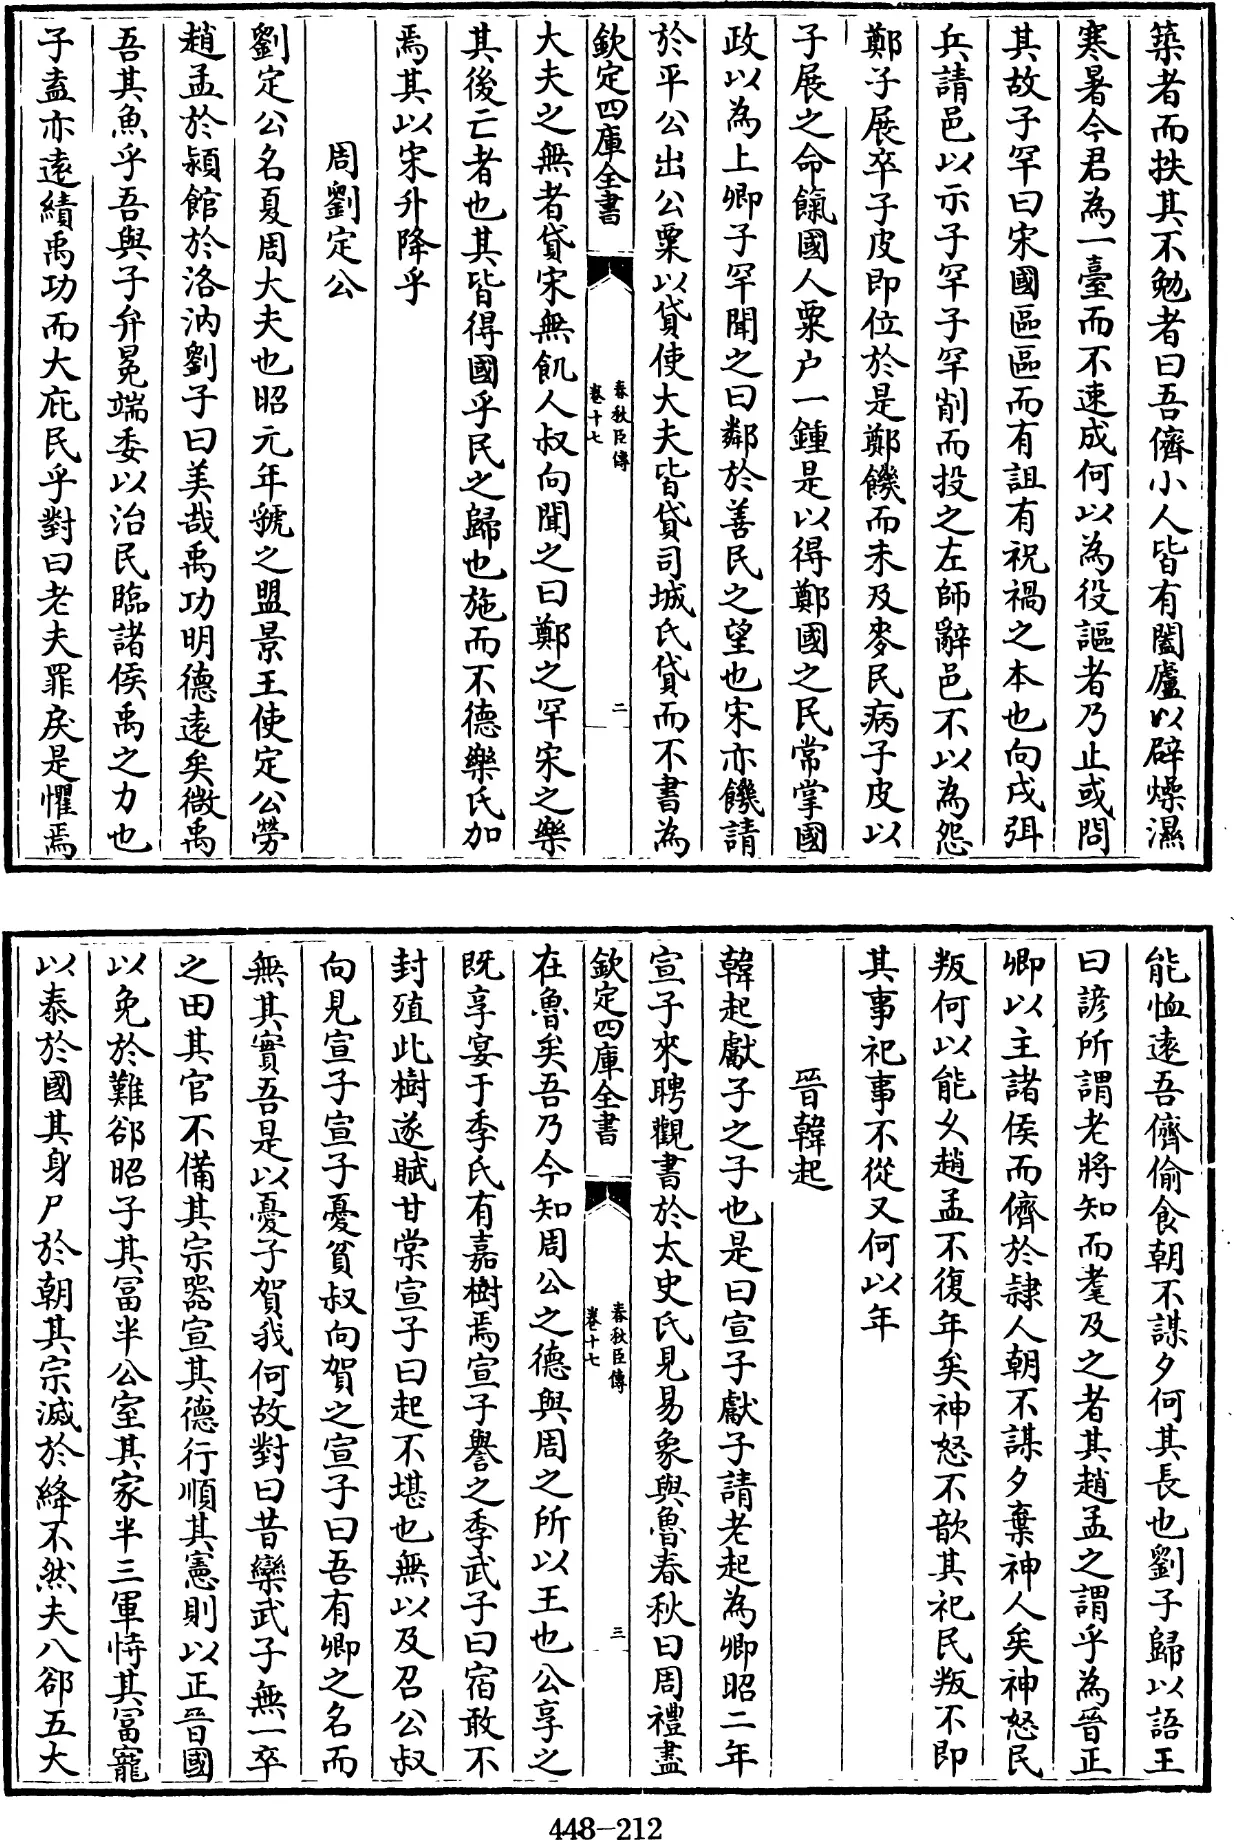 築者而抶其不勉者曰吾儕小人皆有闔廬以辟燥濕
寒暑今君為一臺而不速成何以為役謳者乃止或問
其故子罕曰宋國區區而有詛有祝禍之本也向戌弭
兵請邑以示子罕子罕削而投之左師辭邑不以為怨
鄭子展卒子皮即位於是鄭饑而未及麥民病子皮以
子展之命餼國人粟户一鍾是以得鄭國之民常掌國
政以為上卿子罕聞之曰鄰於善民之望也宋亦饑請
於平公出公粟以貸使大夫皆貸司城氏貸而不書為
欽定四庫全書
春秋臣傳
卷十七
二
大夫之無者貸宋無飢人叔向聞之曰鄭之罕宋之樂
其後亡者也其皆得國乎民之歸也施而不德樂氏加
焉其以宋升降乎
周劉定公
劉定公名夏周大夫也昭元年虢之盟景王使定公勞
趙孟於潁館於洛汭劉子曰美哉禹功明德遠矣微禹
吾其魚乎吾與子弁冕端委以治民臨諸侯禹之力也
子盍亦遠績禹功而大庇民乎對曰老夫罪戾是懼焉
能恤遠吾儕偷食朝不謀夕何其長也劉子歸以語王
曰諺所謂老將知而耄及之者其趙孟之謂乎為晉正
卿以主諸侯而儕於隷人朝不謀夕棄神人矣神怒民
叛何以能久趙孟不復年矣神怒不歆其祀民叛不即
其事祀事不從又何以年
晉韓起
韓起獻子之子也是曰宣子獻子請老起為卿昭二年
宣子來聘觀書於太史氏見易象與魯春秋曰周禮盡
欽定四庫全書
春秋臣傳
卷十七
三
在魯矣吾乃今知周公之德與周之所以王也公享之
既享宴于季氏有嘉樹焉宣子譽之季武子曰宿敢不
封殖此樹遂賦甘棠宣子曰起不堪也無以及召公叔
向見宣子宣子憂貧叔向賀之宣子曰吾有卿之名而
無其實吾是以憂子賀我何故對曰昔欒武子無一卒
之田其官不備其宗器宣其德行順其憲則以正晉國
以免於難郤昭子其富半公室其家半三軍恃其富寵
以泰於國其身尸於朝其宗滅於絳不然夫八郤五大
448-212